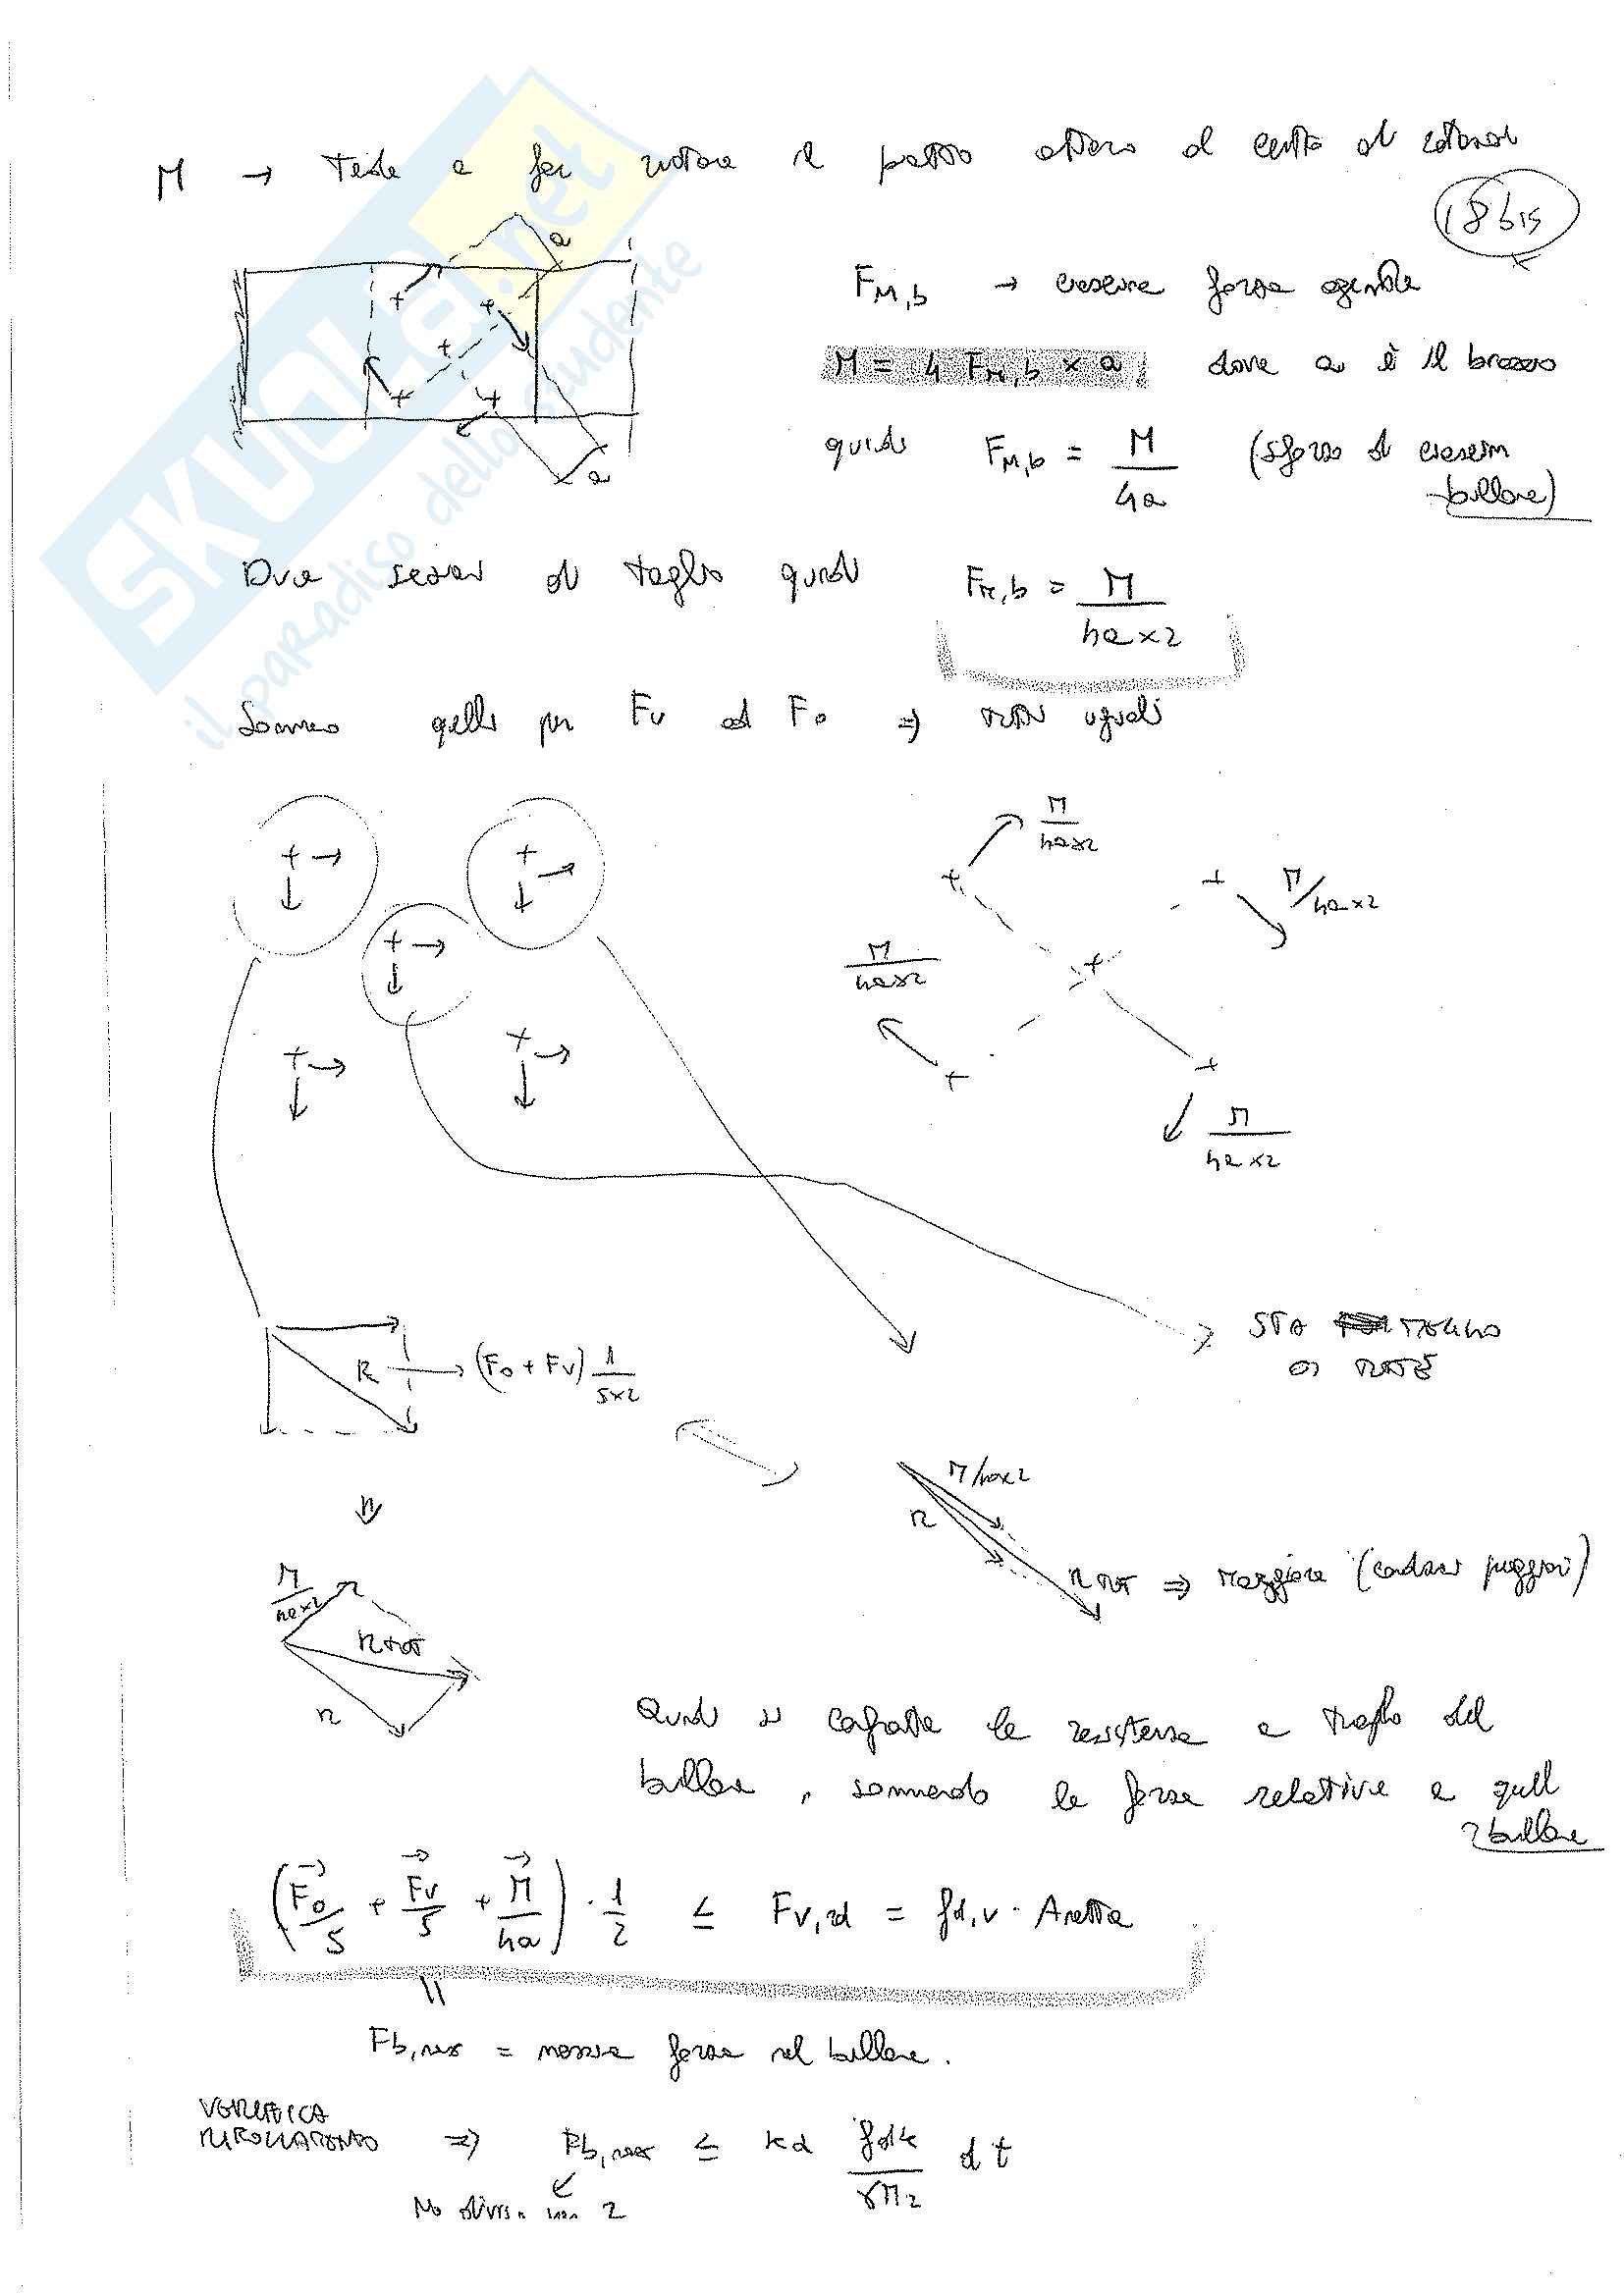 M → Tende a far ruotare il piatto attorno al centro di rotazione
18 bis
a
F_{M,b} → ciascuna forza agente
M = 4 F_{M,b} × a dove a è il braccio
a
quindi F_{M,b} = \frac{M}{4a} (sforzo di ciascun
bullone)
Due sezioni di taglio quindi F_{M,b} = \frac{M}{4a×2}
Sommo quelle per F_v ed F_o ⇒ uguali
\frac{M}{4a×2}
M/4a×2
\frac{M}{4a×2}
\frac{M}{4a×2}
STA
R → (F_o + F_v) \frac{1}{5×2}
M/4a×2
R
\frac{M}{4a×2}
R TOT ⇒ Maggiore (condizioni peggiori)
R TOT
R
Quindi si confronta la resistenza a taglio del
bullone, sommando le forze relative a quel
bullone
(\frac{\vec{F_o}}{5} + \frac{\vec{F_v}}{5} + \frac{\vec{M}}{4a}) · \frac{1}{2} ≤ F_{v,rd} = f_{d,v} · A netta
F_{b,max} = massima forza sul bullone.
VERIFICA
RIFOLLAMENTO ⇒ F_{b,max} ≤ kα \frac{f_{dk}}{γ_{M2}} d t
No divisa con 2
SKUOLA.net
il paradiso dello studente